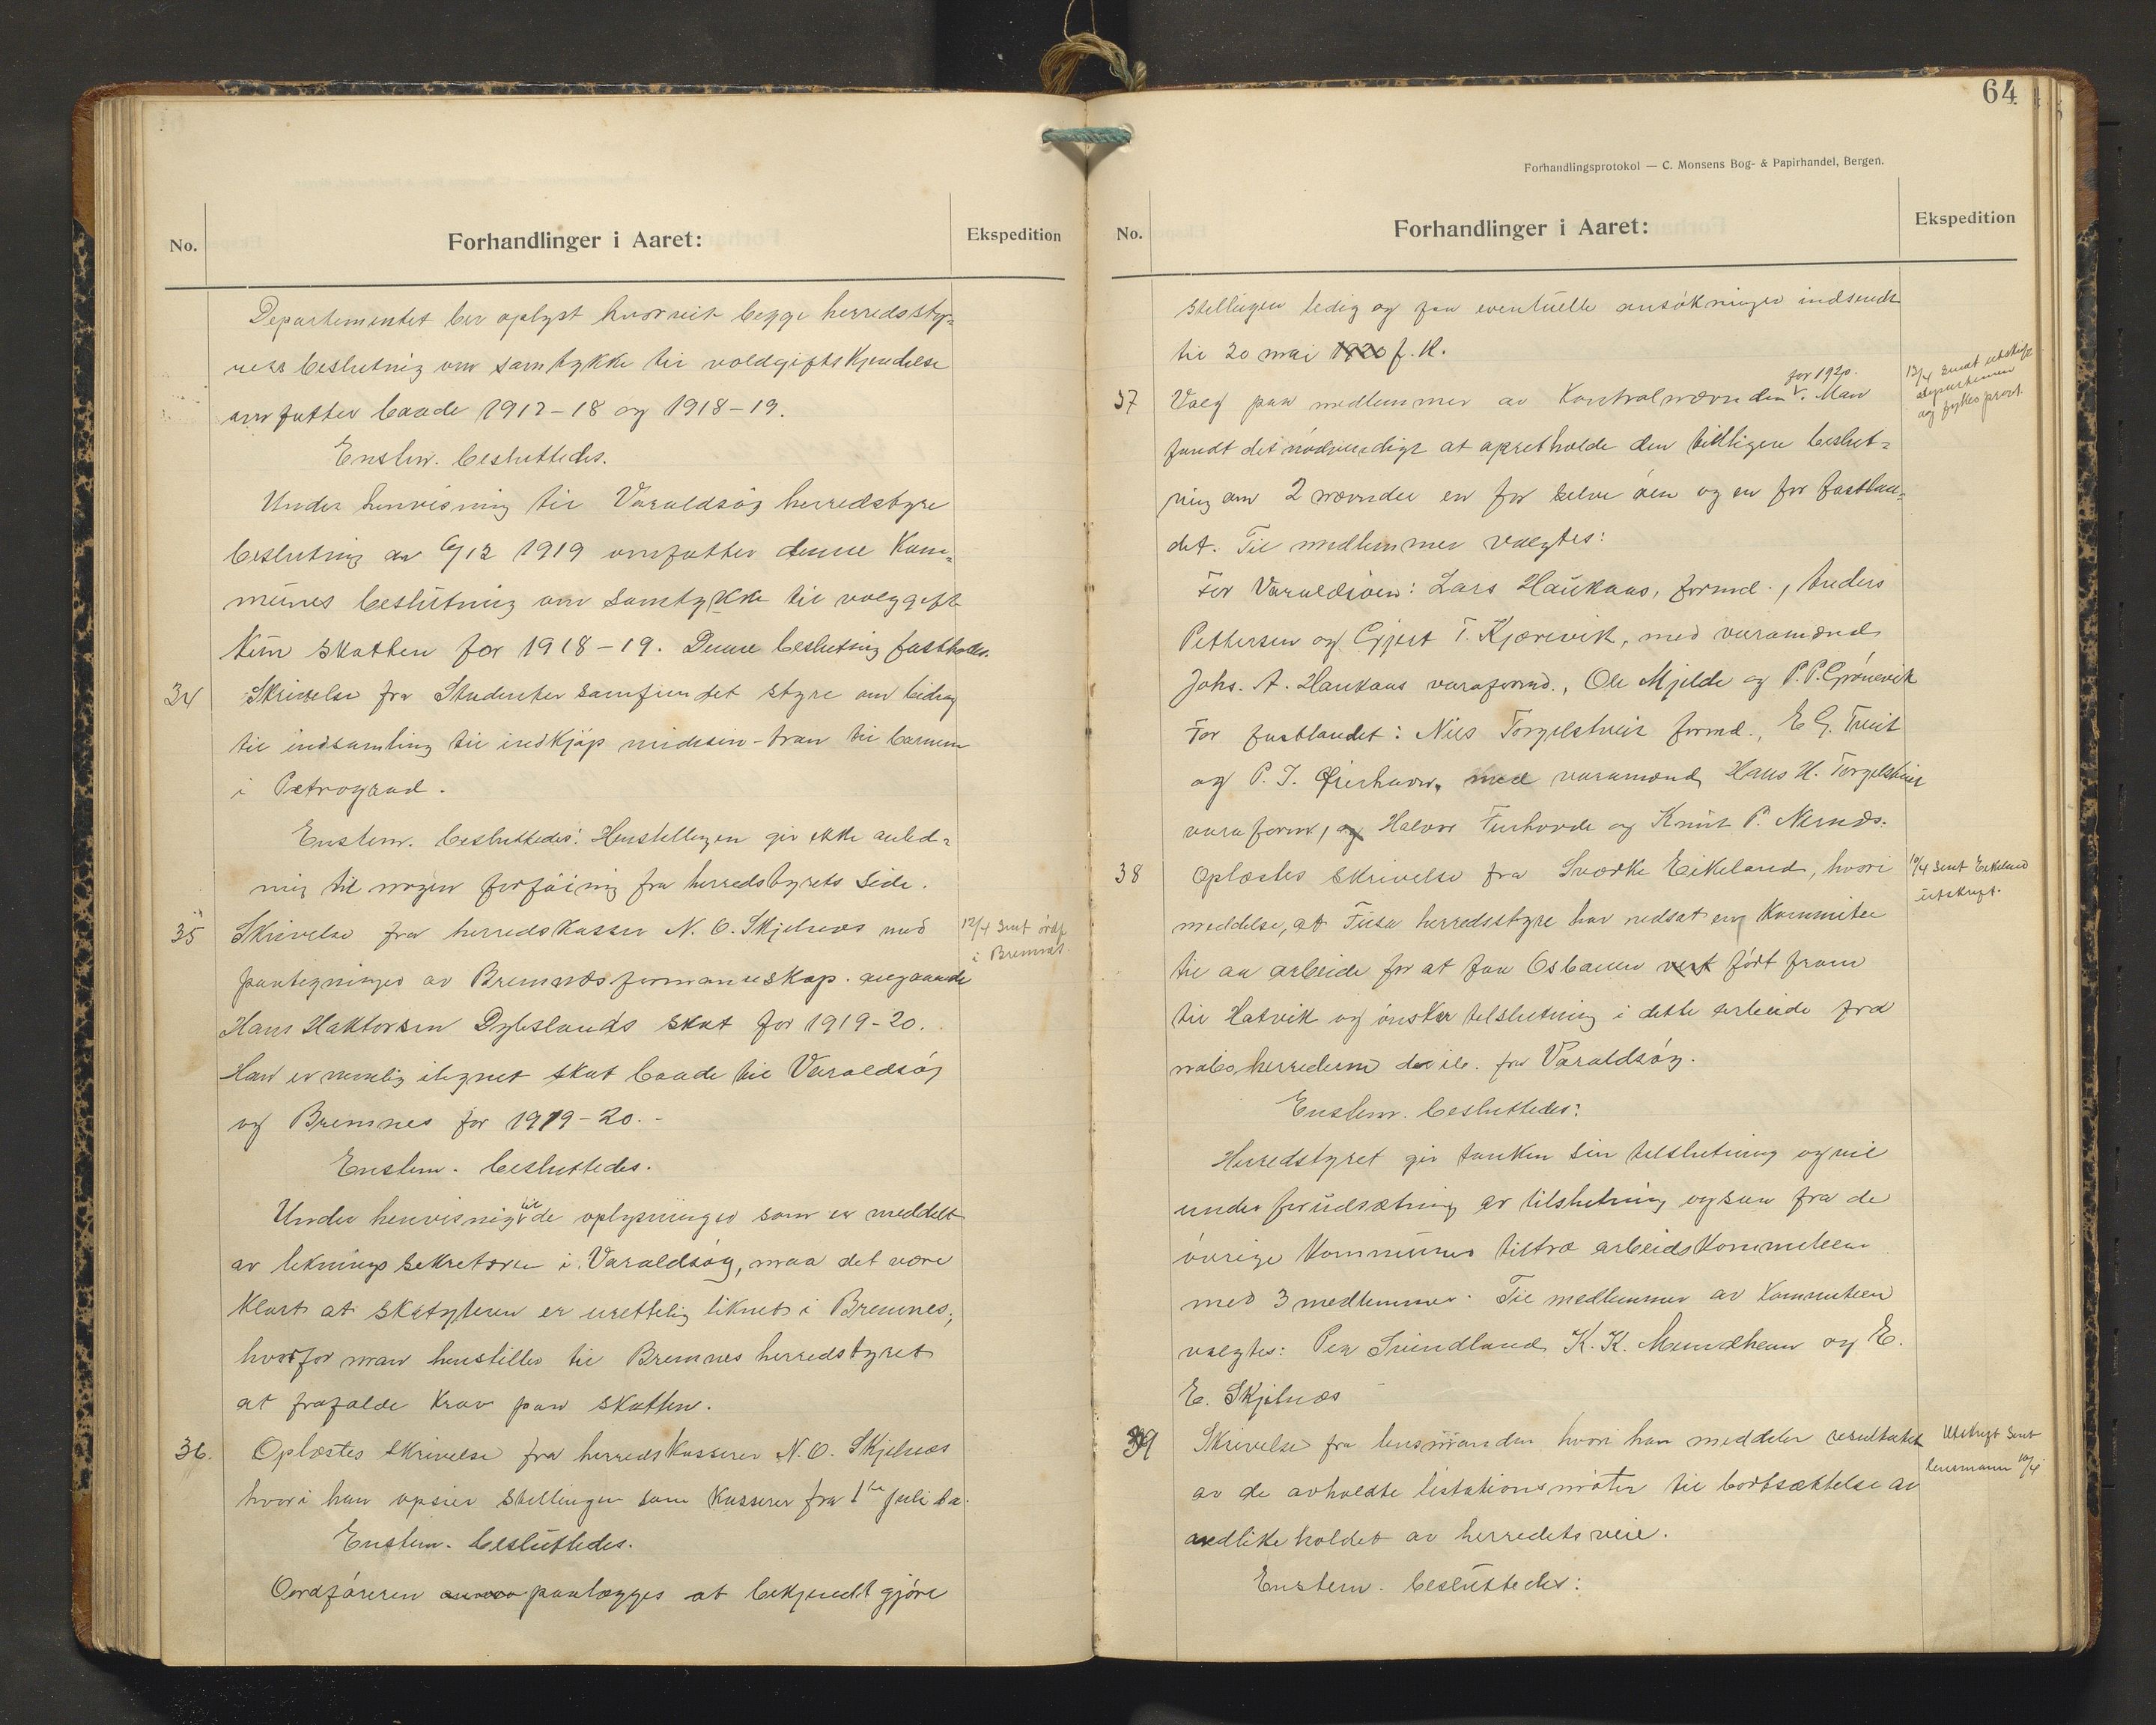 No.
Forhandlinger i Aaret:
Ekspedition
Departementet ber oplyst hvorvidt begge herredssty-
rers beslutning om samtykke til voldgiftskjendelse
omfatter baade 1917-18 og 1918-19.
Enstem. besluttedes.
Under henvisning til Varaldsøy herredstyre
beslutning av 6/12 1919 omfatter denne Kom-
munes beslutning om samtykke til
kun skatten for 1918-19. Denne beslutning fastholdes.
34 Skrivelse fra Studentersamfundet styre om bidrag
til indsamling til indkjøp medisin-tran til barnene
i Petrograd.
Enstem. besluttedes: Henstillingen gir ikke anled-
ning til nogen forføining fra herredstyrets side.
35 Skrivelse fra herredskasser N. O. Skjelnæs med
paategninger av Bremnæs formannskap. angaaende
Hans Haktorsen Dyleslands skat for 1919-20.
Han er nemlig ilignet skat baade til Varaldsøy
og Bremnes for 1919-20.-
12/4 Sent ordf
i Bremnæs.
Enstem. besluttedes.
Under henvisning til de oplysninger som er meddelt
av liknings sekretæren i Varaldsøy, maa det være
klart at skatyteren er urettelig liknet i Bremnes,
hvorfor man henstiller til Bremnes herredstyret
at frafalde krav paa skatten.
36. Oplæstes skrivelse fra herredskasserer N. O. Skjelnæs
hvori han opsier stillingen som Kasserer fra 1ste juli d.a.
Enstem. besluttedes.
Ordføreren paalægges at bekjendtgjøre
64
Forhandlingsprotokol — C. Monsens Bog- & Papirhandel, Bergen.
No.
Forhandlinger i Aaret:
Ekspedition
stillingen ledig og faa eventuelle ansøkninger indsendt
til 20 mai 1920 f. K.
37 Valg paa medlemmer av Kontrolnævnden for 1920. Man
fandt det nødvendigt at opretholde den tidligere beslut-
ning om 2 nævnder en for selve øen og en for fastlan-
det. Til medlemmer valgtes:
13/4 Sendt utskrift
departement
og fylkes
For Varaldsøen: Lars Haukaas, formd., Anders
Pettersen og Gjert T. Kjærevik, med varamænd
Johs. A. Haukaas varaformd., Ole Mjelde og P. P. Grønevik
For fastlandet: Nils Torgilstveit formd., E G.
og P. J. med varamænd Hans H. Torgilstveit
varaform, og Halvor Furhovde og Knut P. Nernæs.
38 Oplæstes skrivelse fra Sværke Eikeland, hvori
meddelse, at Fusa herredsstyre har nedsat en Kommitee
til aa arbeide for at faa Osbanen vert ført fram
til Hatvik og ønsker tilslutning i dette arbeide fra
naboherrederne der ib. fra Varaldsøy.
10/4 Sent Eikeland
utskrift.
Enstem. besluttedes:
Herredstyret gir tanken sin tilslutning og vil
under forudsætning av tilslutning ogsaa fra de
øvrige kommuner tiltræ arbeidskommiteen
med 3 medlemmer. Til medlemmer av kommiteen
valgtes: Per Svindland K. K. Mundheim og E.
E. Skjelnæs
39 Skrivelse fra lensmanden hvori han meddeler resultatet
av de avholdte lisitationsmøter til bortsættelse av
vedlikeholdet av herredets veie.
Utskrift Sent
lensmann 10/4
Enstem. besluttedes: